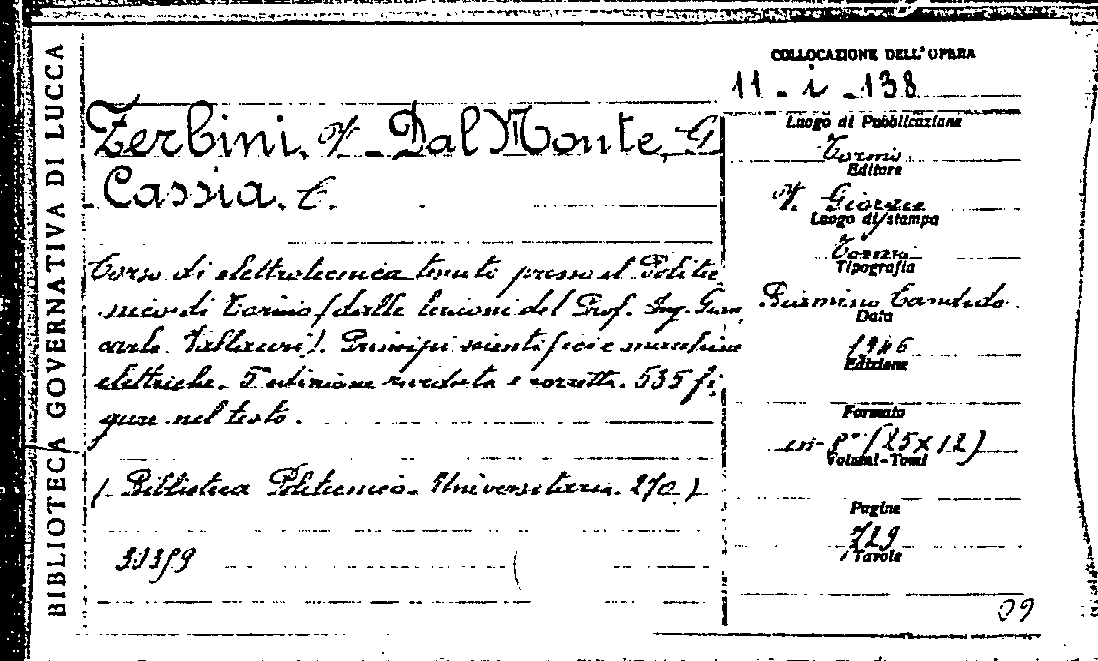 BIBLIOTECA GOVERNATIVA DI LUCCA
Zerbini, V. - Dal Monte, G
Cassia, C.
Corso di elettrotecnica tenuti presso il Politec
nico di Torino (dalle lezioni del Prof. Ing. Gian,
carlo Vallauri). Principi scientifici e macchine
elettriche. 5 edizione riveduta e corretta. 535 fi,
gure nel testo.
( Biblioteca Politecnico - Universitaria. 270. )
COLLOCAZIONE DELL'OPERA
11 - i - 138
Luogo di Pubblicazione
Torino
Editore
V. Giorgio
Luogo di stampa
Torino
Tipografia
Candido
Data
1946
Edizione
Formato
in-8° (25 x 12)
Volumi-Tomi
Pagine
729
Tavole
09